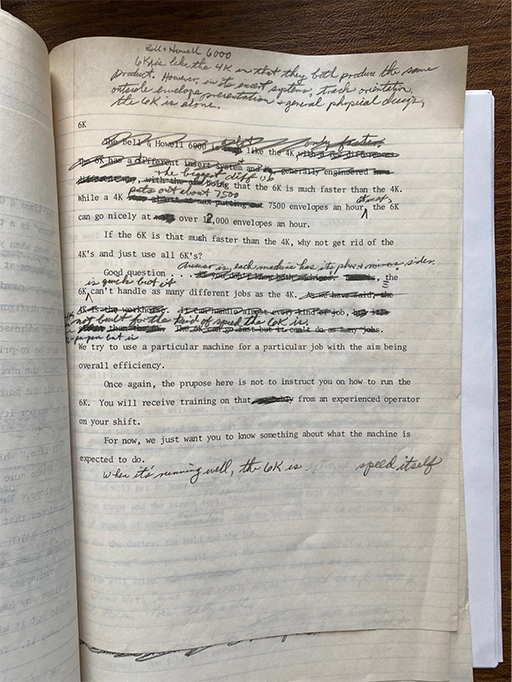 Bell & Howell 6000
6K is like the 4K in that they both produce the same
product. However in its insert systems, track orientation,
outside envelope presentation & general physical design,
the 6K is alone.
6K
The Bell & Howell 6000 is a lot only faster.
like the 4K with a few differences
The 6K has a different insert system and generally engineered
the biggest diff is
with the that the 6K is much faster than the 4K.
puts out about 7500 at max
While a 4K 7500 envelopes an hour, the 6K
can go nicely at over 12,000 envelopes an hour.
If the 6K is that much faster than the 4K, why not get rid of the
4K's and just use all 6K's?
Answer is, each machine has its plus & minus sides.
Good question . . . the
is quick but it
6K can't handle as many different jobs as the 4K. As we have said, the
4K is the workhorse. It can handle almost every kind of job,
not built for the kind of speed the 6K is.
We try to use a particular machine for a particular job with the aim being
overall efficiency.
Once again, the prupose here is not to instruct you on how to run the
6K. You will receive training on that from an experienced operator
on your shift.
For now, we just want you to know something about what the machine is
expected to do.
When it's running well, the 6K is speed itself